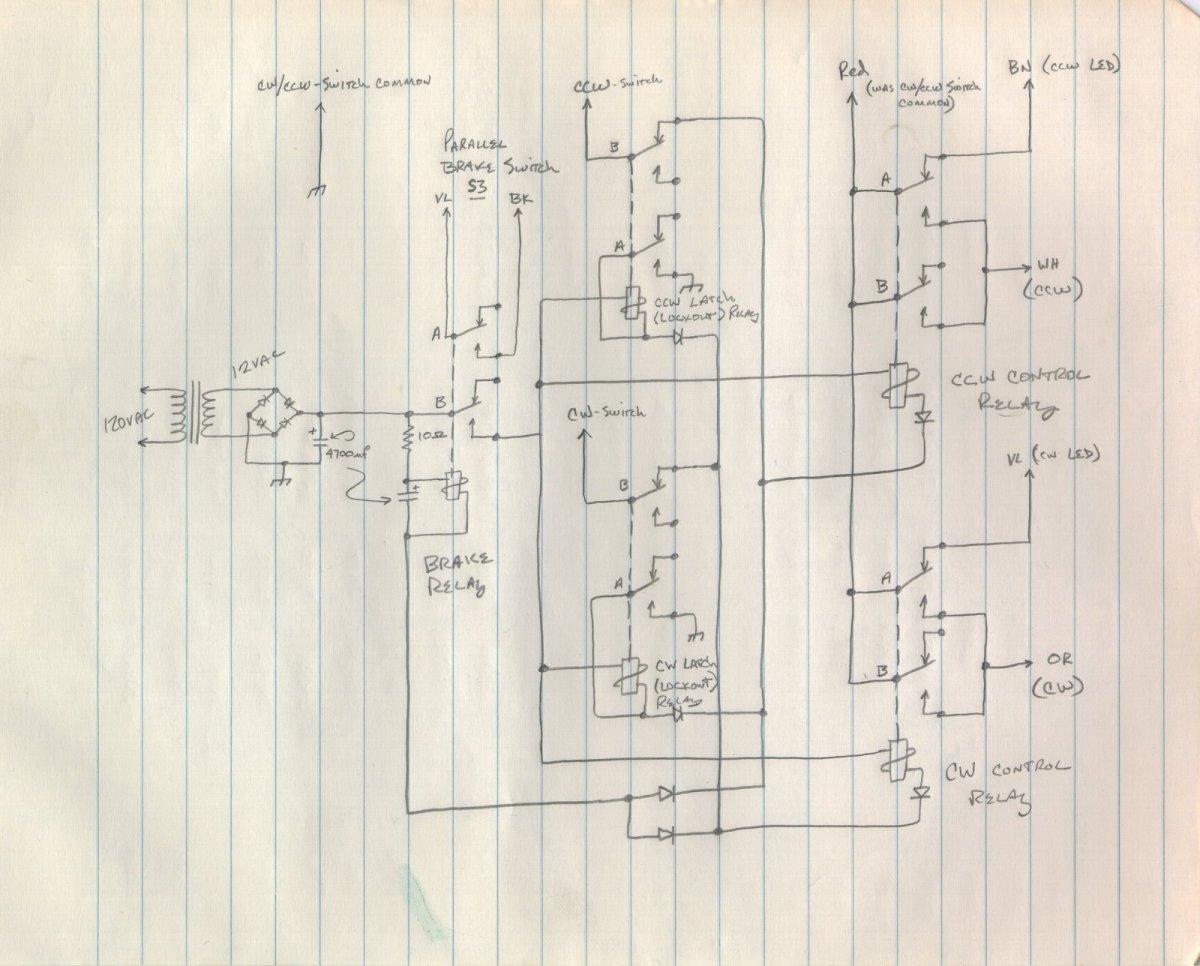 CW/CCW-Switch COMMON
CCW-Switch
Red
(WAS CW/CCW Switch
COMMON)
BN (CCW LED)
PARALLEL
BRAKE Switch
S3
VL
BK
B
A
A
B
WH
(CCW)
CCW LATCH
(LOCKOUT) RELAY
A
12VAC
120VAC
+
4700uf
10Ω
B
+
BRAKE
RELAY
CCW CONTROL
RELAY
CW-Switch
VL (CW LED)
B
A
A
B
OR
(CW)
CW LATCH
(LOCKOUT)
RELAY
CW CONTROL
RELAY